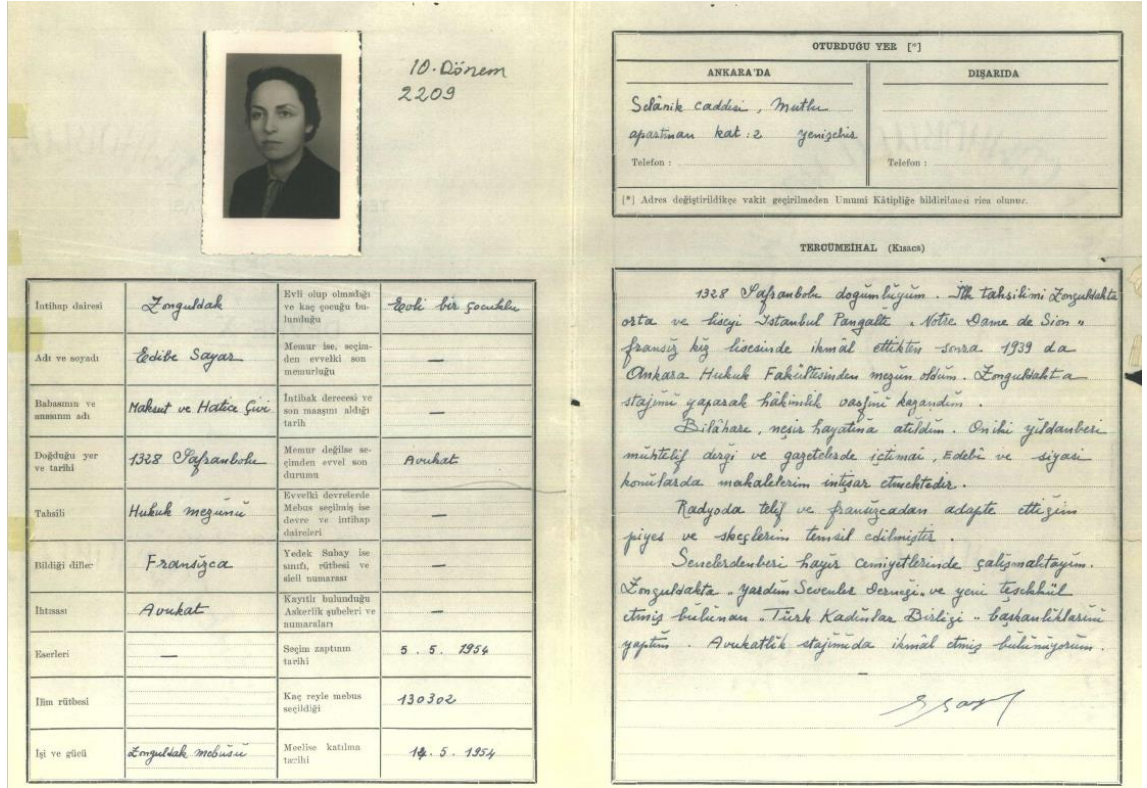 10. Dönem
2209
İntihap dairesi
Zonguldak
Evli olup olmadığı
ve kaç çocuğu bu-
lunduğu
Evli bir çocuklu
Adı ve soyadı
Edibe Sayar
Memur ise, seçim-
den evvelki son
memurluğu
—
Babasının ve
anasının adı
Maksut ve Hatice Çivi
İntibak derecesi ve
son maaşını aldığı
tarih
—
Doğduğu yer
ve tarihi
1328 Safranbolu
Memur değilse se-
çimden evvel son
durumu
Avukat
Tahsili
Hukuk mezunu
Evvelki devrelerde
Mebus seçilmiş ise
devre ve intihap
daireleri
—
Bildiği diller
Fransızca
Yedek Subay ise
sınıfı, rütbesi ve
sicil numarası
—
İhtısası
Avukat
Kayıtlı bulunduğu
Askerlik şubeleri ve
numaraları
—
Eserleri
—
Seçim zaptının
tarihi
5 . 5 . 1954
İlim rütbesi
Kaç reyle mebus
seçildiği
130302
İşi ve gücü
Zonguldak mebusu
Meclise katılma
tarihi
14 . 5 . 1954
OTURDUĞU YER [*]
ANKARA'DA
DIŞARIDA
Selânik caddesi, Mutlu
apartman kat : 2 Yenişehir
Telefon :
Telefon :
[*] Adres değiştirildikçe vakit geçirilmeden Umumi Kâtipliğe bildirilmesi rica olunur.
TERCÜMEİHAL (Kısaca)
1328 Safranbolu doğumluyum. İlk tahsilimi Zonguldakta
orta ve liseyi İstanbul Pangaltı „Notre Dame de Sion"
fransız kız lisesinde ikmâl ettikten sonra 1939 da
Ankara Hukuk Fakültesinden mezun oldum. Zonguldakta
stajımı yaparak hâkimlik vasfını kazandım.
Bilâhare, neşir hayatına atıldım. Oniki yıldanberi
muhtelif dergi ve gazetelerde içtimai, Edebi ve siyasi
konularda makalelerim intişar etmektedir.
Radyoda telif ve fransızcadan adapte ettiğim
piyes ve skeçlerim temsil edilmiştir.
Senelerdenberi hayır cemiyetlerinde çalışmaktayım.
Zonguldakta yardım Sevenler Derneği ve yeni teşekkül
etmiş bulunan „Türk Kadınlar Birliği" başkanlıklarını
yaptım. Avukatlık stajımıda ikmâl etmiş bulunuyorum.